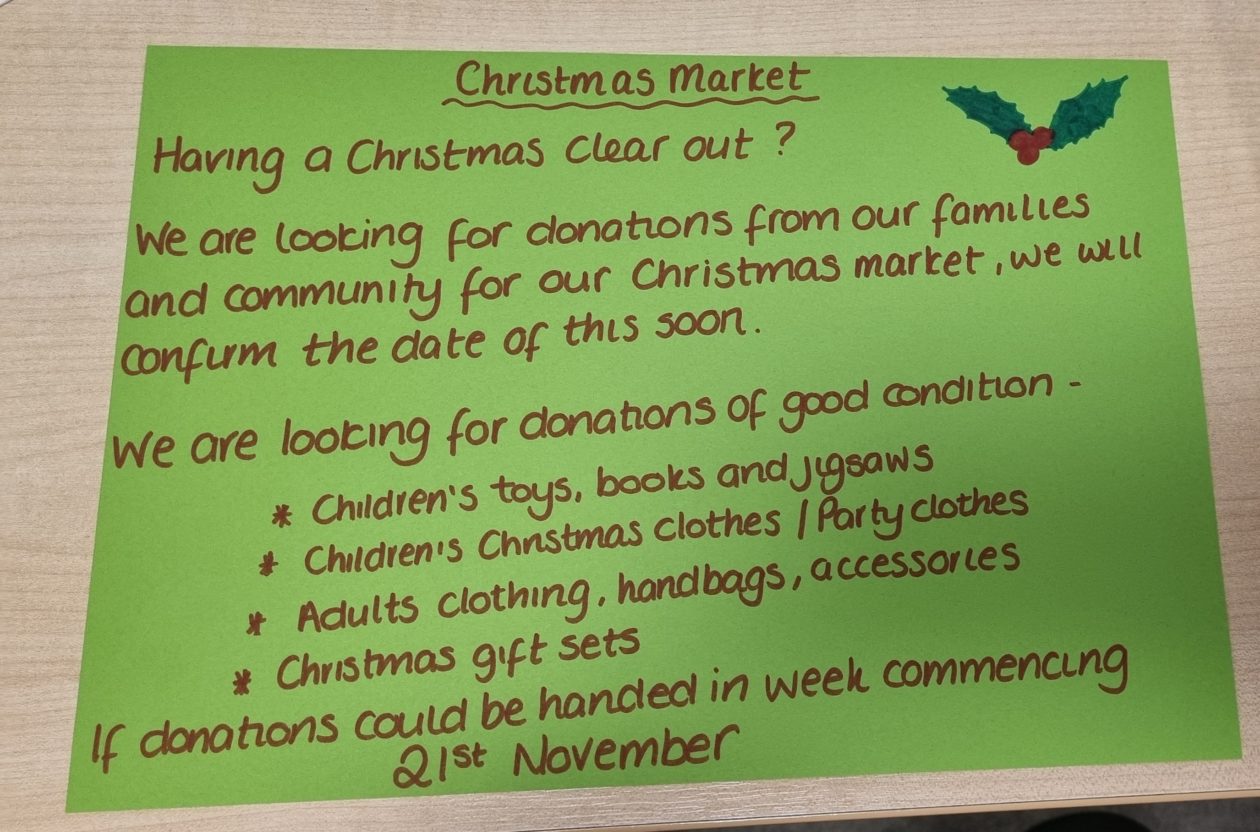 Christmas Market
Having a Christmas clear out ?
We are looking for donations from our families
and community for our Christmas market, we will
confirm the date of this soon.
We are looking for donations of good condition -
* Children's toys, books and jigsaws
* Children's Christmas clothes / Party clothes
* Adults clothing, handbags, accessories
* Christmas gift sets
If donations could be handed in week commencing
21st November